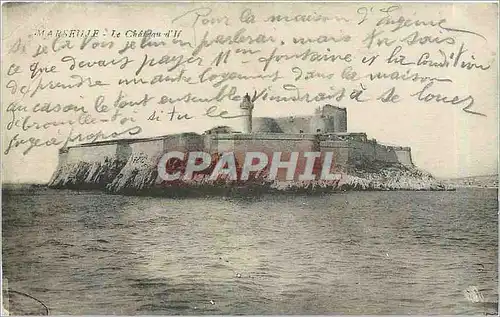 MARSEILLE - Le Château d'If
Pour la maison d'Eugenie
si je la vois je lui en parlerai, mais toi sous
ce que devait payer Mm fontaine et la condition
de prendre un autre logement dans la maison
au cas on le tout ensemble viendrait à se louer
débrouille-toi si tu le
juge à propos
CPAPHIL